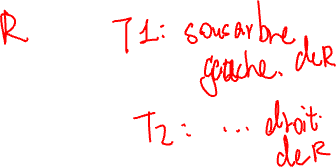 R T1: sousarbre
gauche. de R
T2: ... droit.
de R